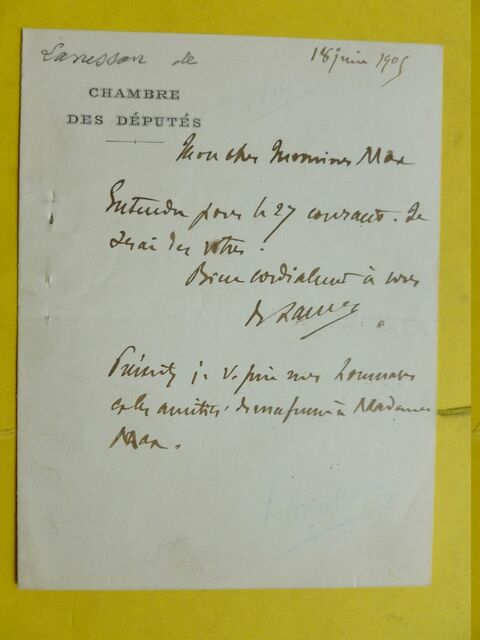 Lanessan de
18 juin 1905
CHAMBRE
DES DÉPUTÉS
Mon cher Monsieur Max
Entendu pour le 27 courant. Je
serai des vôtres.
Bien cordialement à vous
de Lanes
Présentez je v. prie mes hommages
et les amitiés de ma femme à Madame
Max.